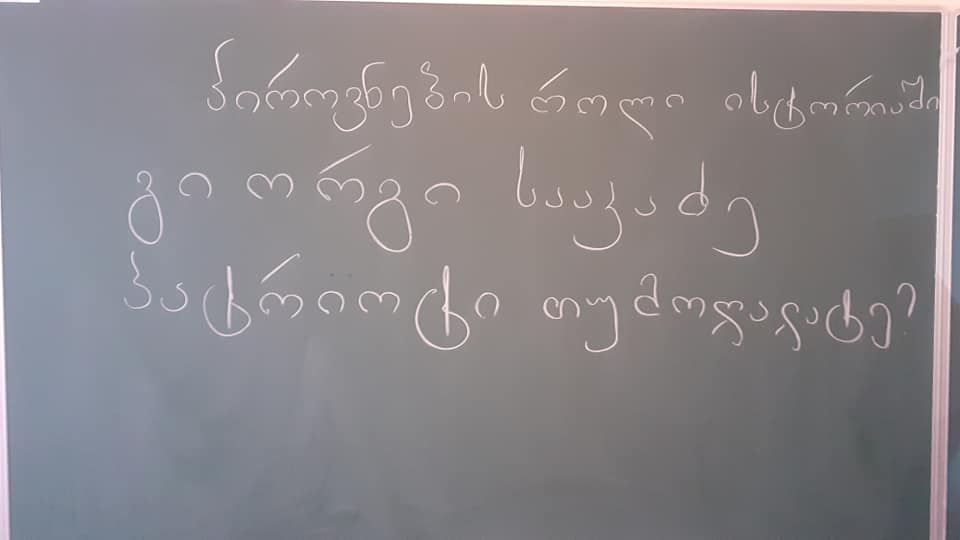 პიროვნების როლი ისტორიაში
გიორგი სააკაძე
პატრიოტი თუ მოღალატე?